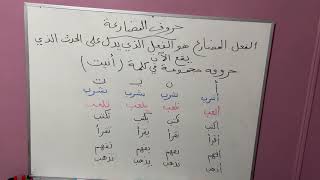 حروف المضارعة
الفعل المضارع هو الفعل الذي يدل على الحدث الذي
يقع الآن
حروفه مجموعة في كلمة (أنيت)
أ ن ي ت
أشرب نشرب يشرب تشرب
ألعب نلعب يلعب تلعب
أكتب نكتب يكتب تكتب
أقرأ نقرأ يقرأ تقرأ
أفهم نفهم يفهم تفهم
أذهب نذهب يذهب تذهب